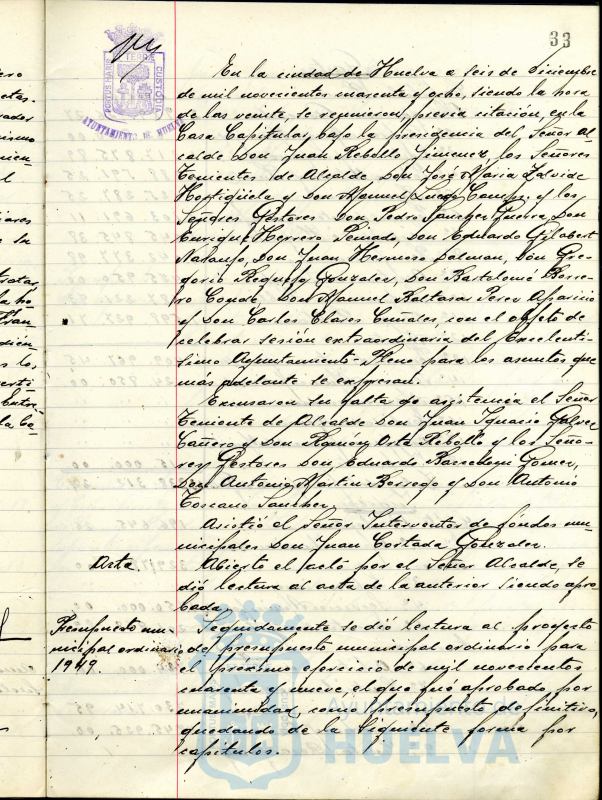 33
PORTUS MARIS
TERRÆ
CUSTODIA
AYUNTAMIENTO DE HUELVA
En la ciudad de Huelva a seis de Diciembre
de mil novecientos cuarenta y ocho, siendo la hora
de las veinte, se reunieron, previa citación, en la
Casa Capitular, bajo la presidencia del Señor Al-
calde Don Juan Rebollo Jimenez, los Señores
Tenientes de Alcalde Don José Maria Zalvide
Hortigüela y Don Manuel Lucas y los
Señores Gestores Don Pedro Sanchez Guerra, Don
Enrique Herrero Peinado, Don Eduardo Gilabert
Naranjo, Don Juan Hermoso Don Gre-
gorio Requejo Gonzalez, Don Bartolomé Borre-
ro Conde, Don Manuel Baltasar Perez Aparicio
y Don Carlos Clares Cuñales, con el objeto de
celebrar sesión extraordinaria del Excelentí-
simo Ayuntamiento-Pleno para los asuntos que
más adelante se expresan.
Excusaron su falta de asistencia el Señor
Teniente de Alcalde Don Juan Ignacio Galvez
Cañero y Don Ramón Orta Rebollo y los Seño-
res Gestores Don Eduardo Gomez,
Don Antonio Martin Borrego y Don Antonio
Toscano Sanchez
Asistió el Señor Interventor de fondos mu-
nicipales Don Juan Cortada Gonzalez.
Acta.
Abierto el acto por el Señor Alcalde, se
dió lectura al acta de la anterior siendo apro-
bada.
Presupuesto mu-
nicipal ordinario
1949.
Seguidamente se dió lectura al proyecto
de presupuesto municipal ordinario para
el próximo ejercicio de mil novecientos
cuarenta y nueve, el que fué aprobado por
unanimidad, como presupuesto definitivo,
quedando de la siguiente forma por
capítulos.
Ayuntamiento de
HUELVA